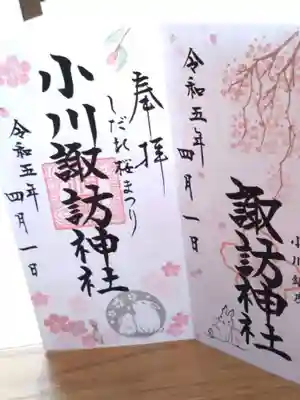 奉拝
しだれ桜まつり
小川諏訪神社
令和五年 四月一日
小川諏訪
諏訪神社
令和五年 四月一日